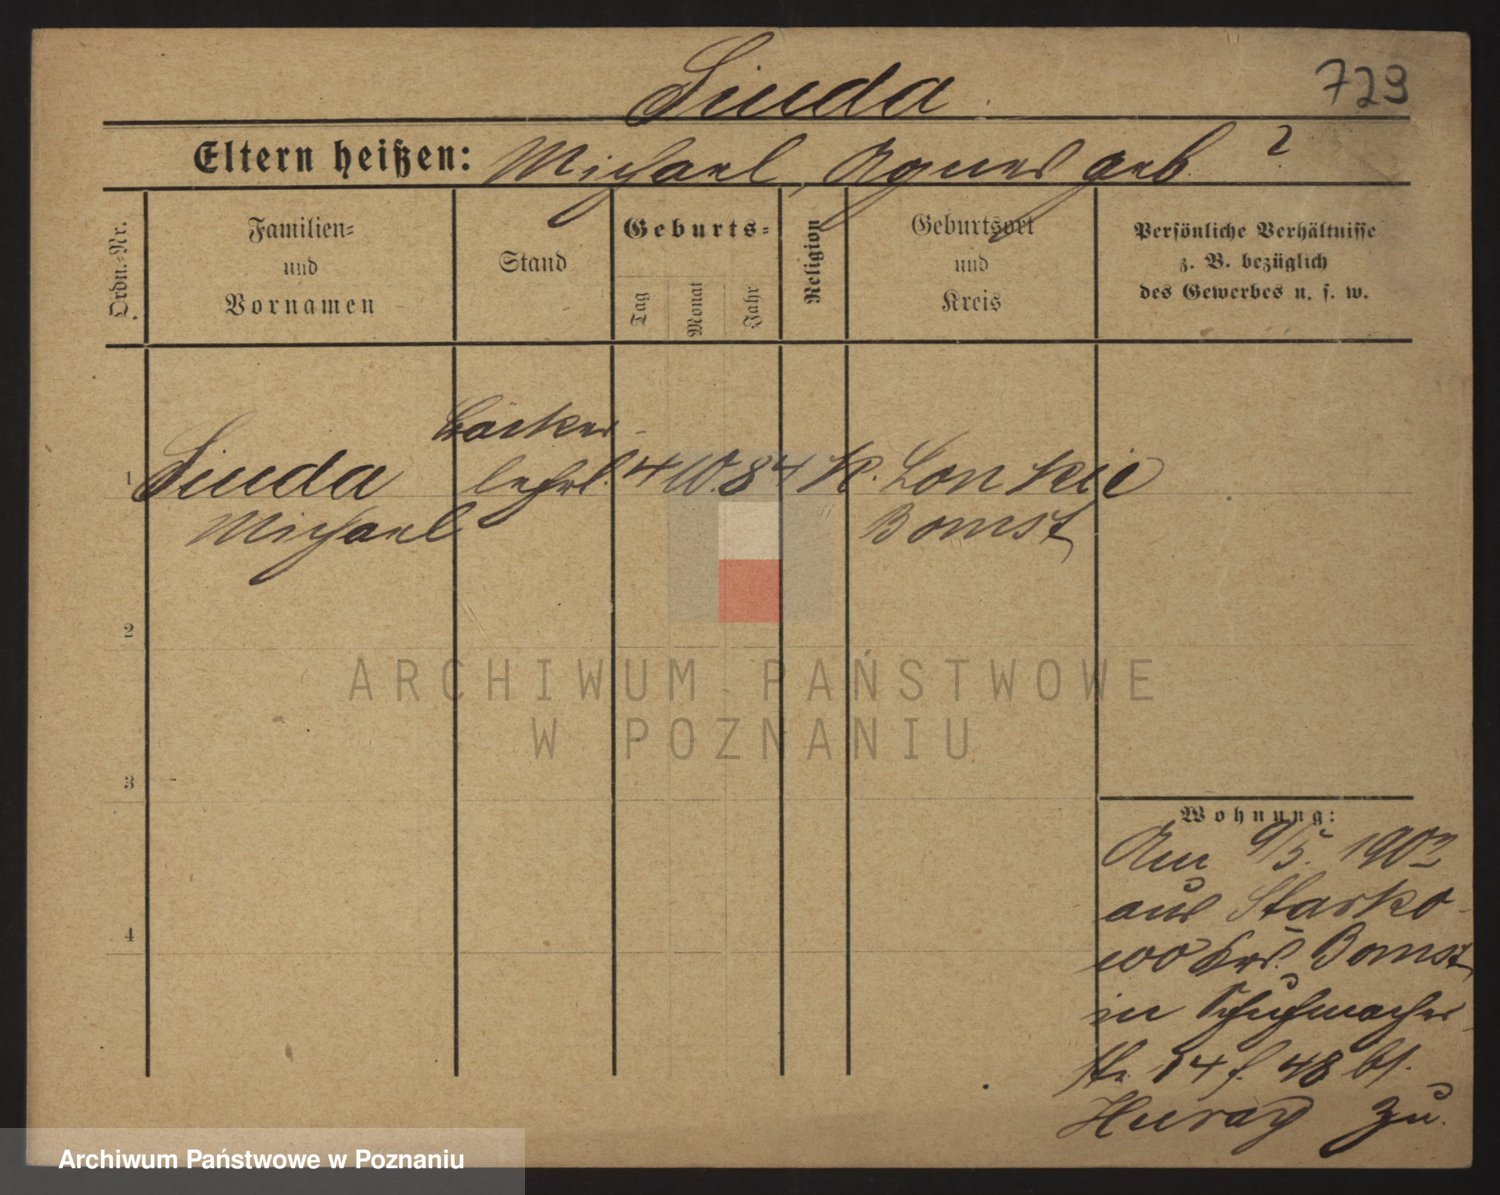 Siuda
729
Eltern heißen: Michael, Agnes geb. ?
Ordn.-Nr.
Familien-
und
Vornamen
Stand
Geburts-
Tag
Monat
Jahr
Religion
Geburtsort
und
Kreis
Persönliche Verhältnisse
z. B. bezüglich
des Gewerbes u. s. w.
Bäcker-
1 Siuda lehrl. 4 10. 84 K. Lonkie
Michael Bomst
2
3
4
Wohnung:
Am 9/5. 1902
aus Starko-
wo Krs. Bomst
in Schuhmacher-
str. 14 f. 48 bt.
zu.
ARCHIWUM PAŃSTWOWE
W POZNANIU
Archiwum Państwowe w Poznaniu